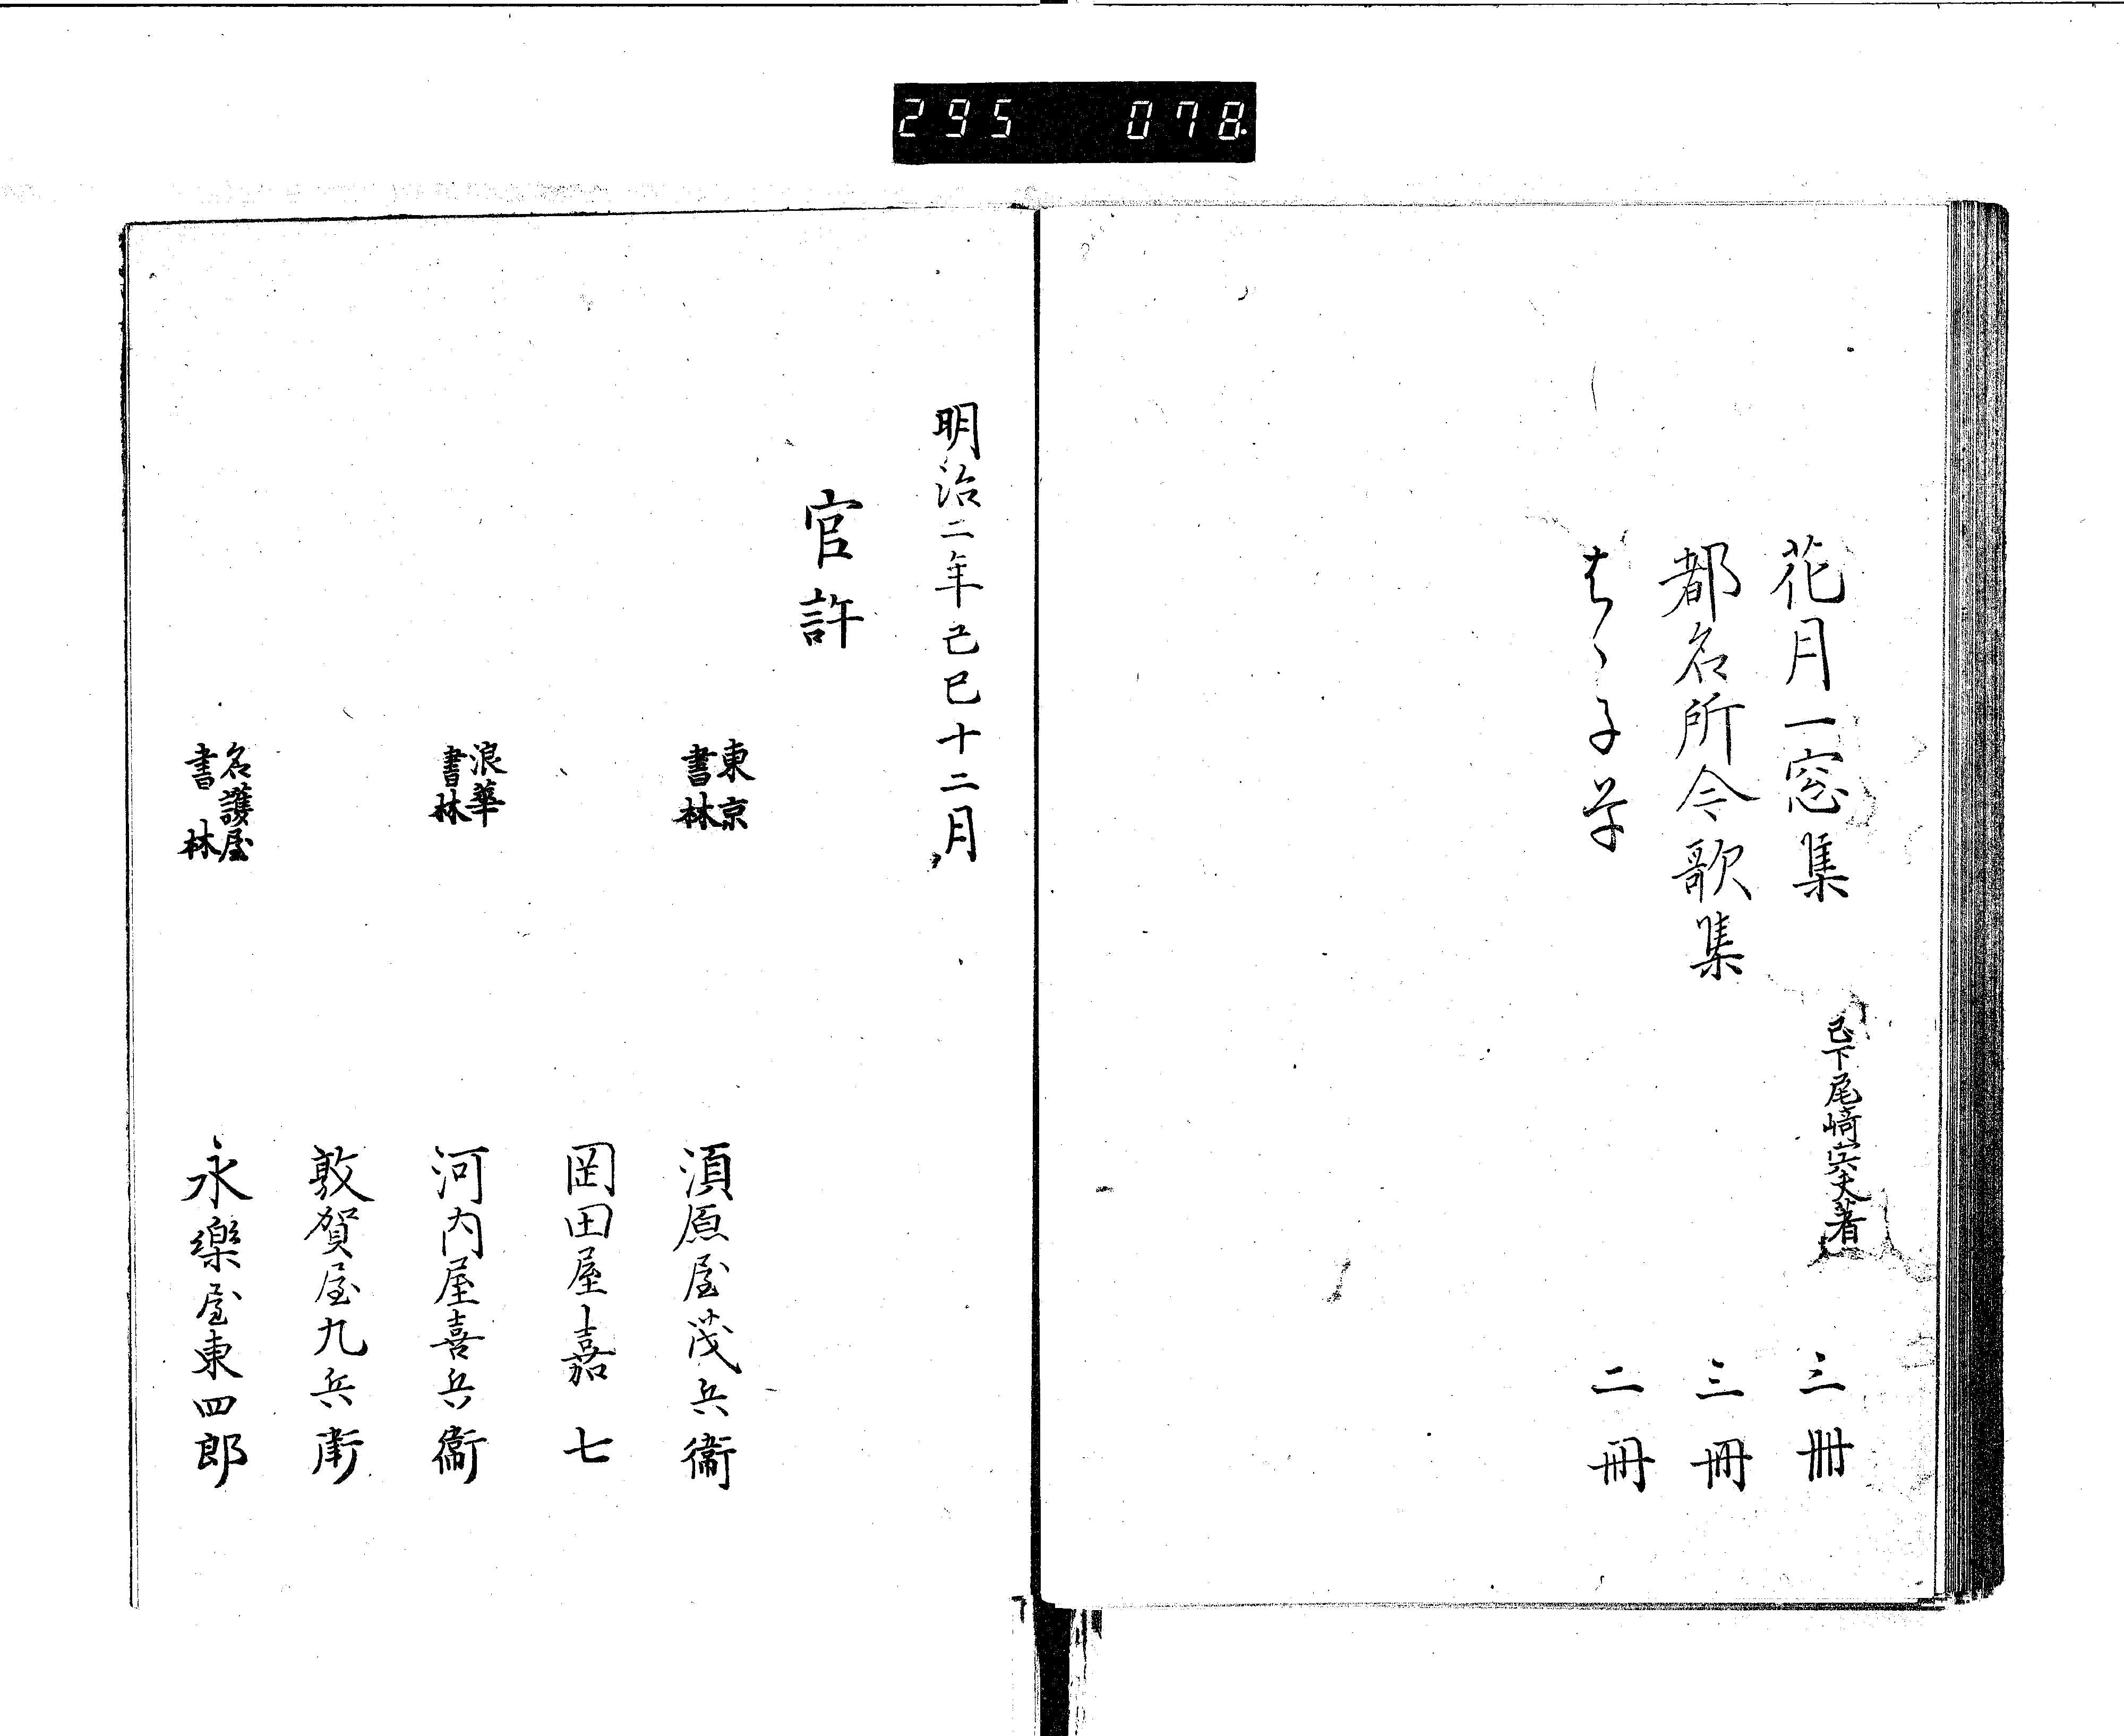 295 078
花月一窓集 已下尾崎宍夫著 三冊
都名所今歌集 三冊
はゝ子草 二冊
明治二年己巳十二月
官許
東京書林 須原屋茂兵衞
岡田屋嘉七
浪華書林 河内屋喜兵衞
敦賀屋九兵衛
名護屋書林 永樂屋東四郎